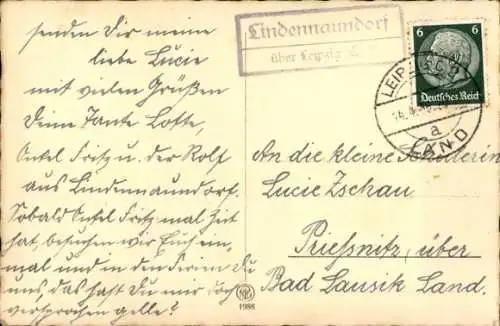 senden Dir meine
liebe Lucie
mit vielen Grüßen
Deine Tante Lotte,
Onkel Fritz u. der Rolf
aus Lindennaundorf.
Sobald Onkel Fritz mal Zeit
hat, besuchen wir Euch ein-
mal und in den Ferien Du
uns, das hast Du mir doch
versprochen gelle?
Lindennaundorf
über Leipzig
6 6
Deutsches Reich
LEIPZIG
a
LAND
An die kleine Schülerin
Lucie Zschau
Prießnitz, über
Bad Lausik Land.
1988